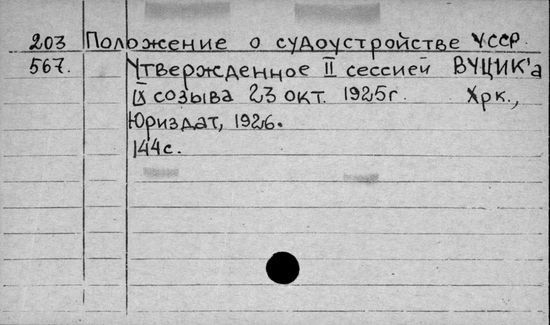 203 Положение о судоустройстве УССР.
567. Утвержденное II сессией ВУЦИК'а
IX созыва 23 окт. 1925г. Хрк.,
Юриздат, 1926.
144с.